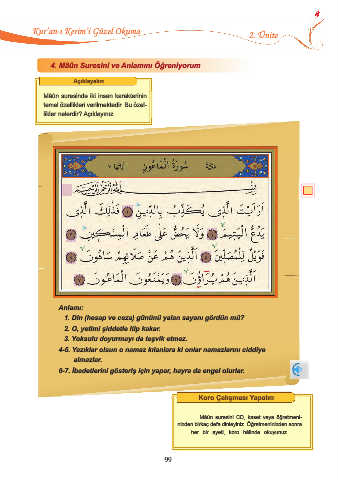 Kur'an-ı Kerim'i Güzel Okuma
2. Ünite
4. Mâûn Suresini ve Anlamını Öğreniyorum
Açıklayalım
Mâûn suresinde iki insan karakterinin
temel özellikleri verilmektedir. Bu özel-
likler nelerdir? Açıklayınız.
سُورَةُ الْمَاعُونِ
بِسْمِ اللّٰهِ الرَّحْمٰنِ الرَّحِيمِ
اَرَاَيْتَ الَّذِي يُكَذِّبُ بِالدِّينِ ١ فَذٰلِكَ الَّذِي
يَدُعُّ الْيَتِيمَ ٢ وَلَا يَحُضُّ عَلٰى طَعَامِ الْمِسْكِينِ ٣
فَوَيْلٌ لِلْمُصَلِّينَ ٤ اَلَّذِينَ هُمْ عَنْ صَلَاتِهِمْ سَاهُونَ ٥
اَلَّذِينَ هُمْ يُرَاؤُنَ ٦ وَيَمْنَعُونَ الْمَاعُونَ ٧
Anlamı:
1. Din (hesap ve ceza) gününü yalan sayanı gördün mü?
2. O, yetimi şiddetle itip kakar.
3. Yoksulu doyurmayı da teşvik etmez.
4-5. Yazıklar olsun o namaz kılanlara ki onlar namazlarını ciddiye
almazlar.
6-7. İbadetlerini gösteriş için yapar, hayra da engel olurlar.
Koro Çalışması Yapalım
Mâûn suresini CD, kaset veya öğretmeni-
nizden birkaç defa dinleyiniz. Öğretmeninizden sonra
her bir ayeti, koro hâlinde okuyunuz.
99